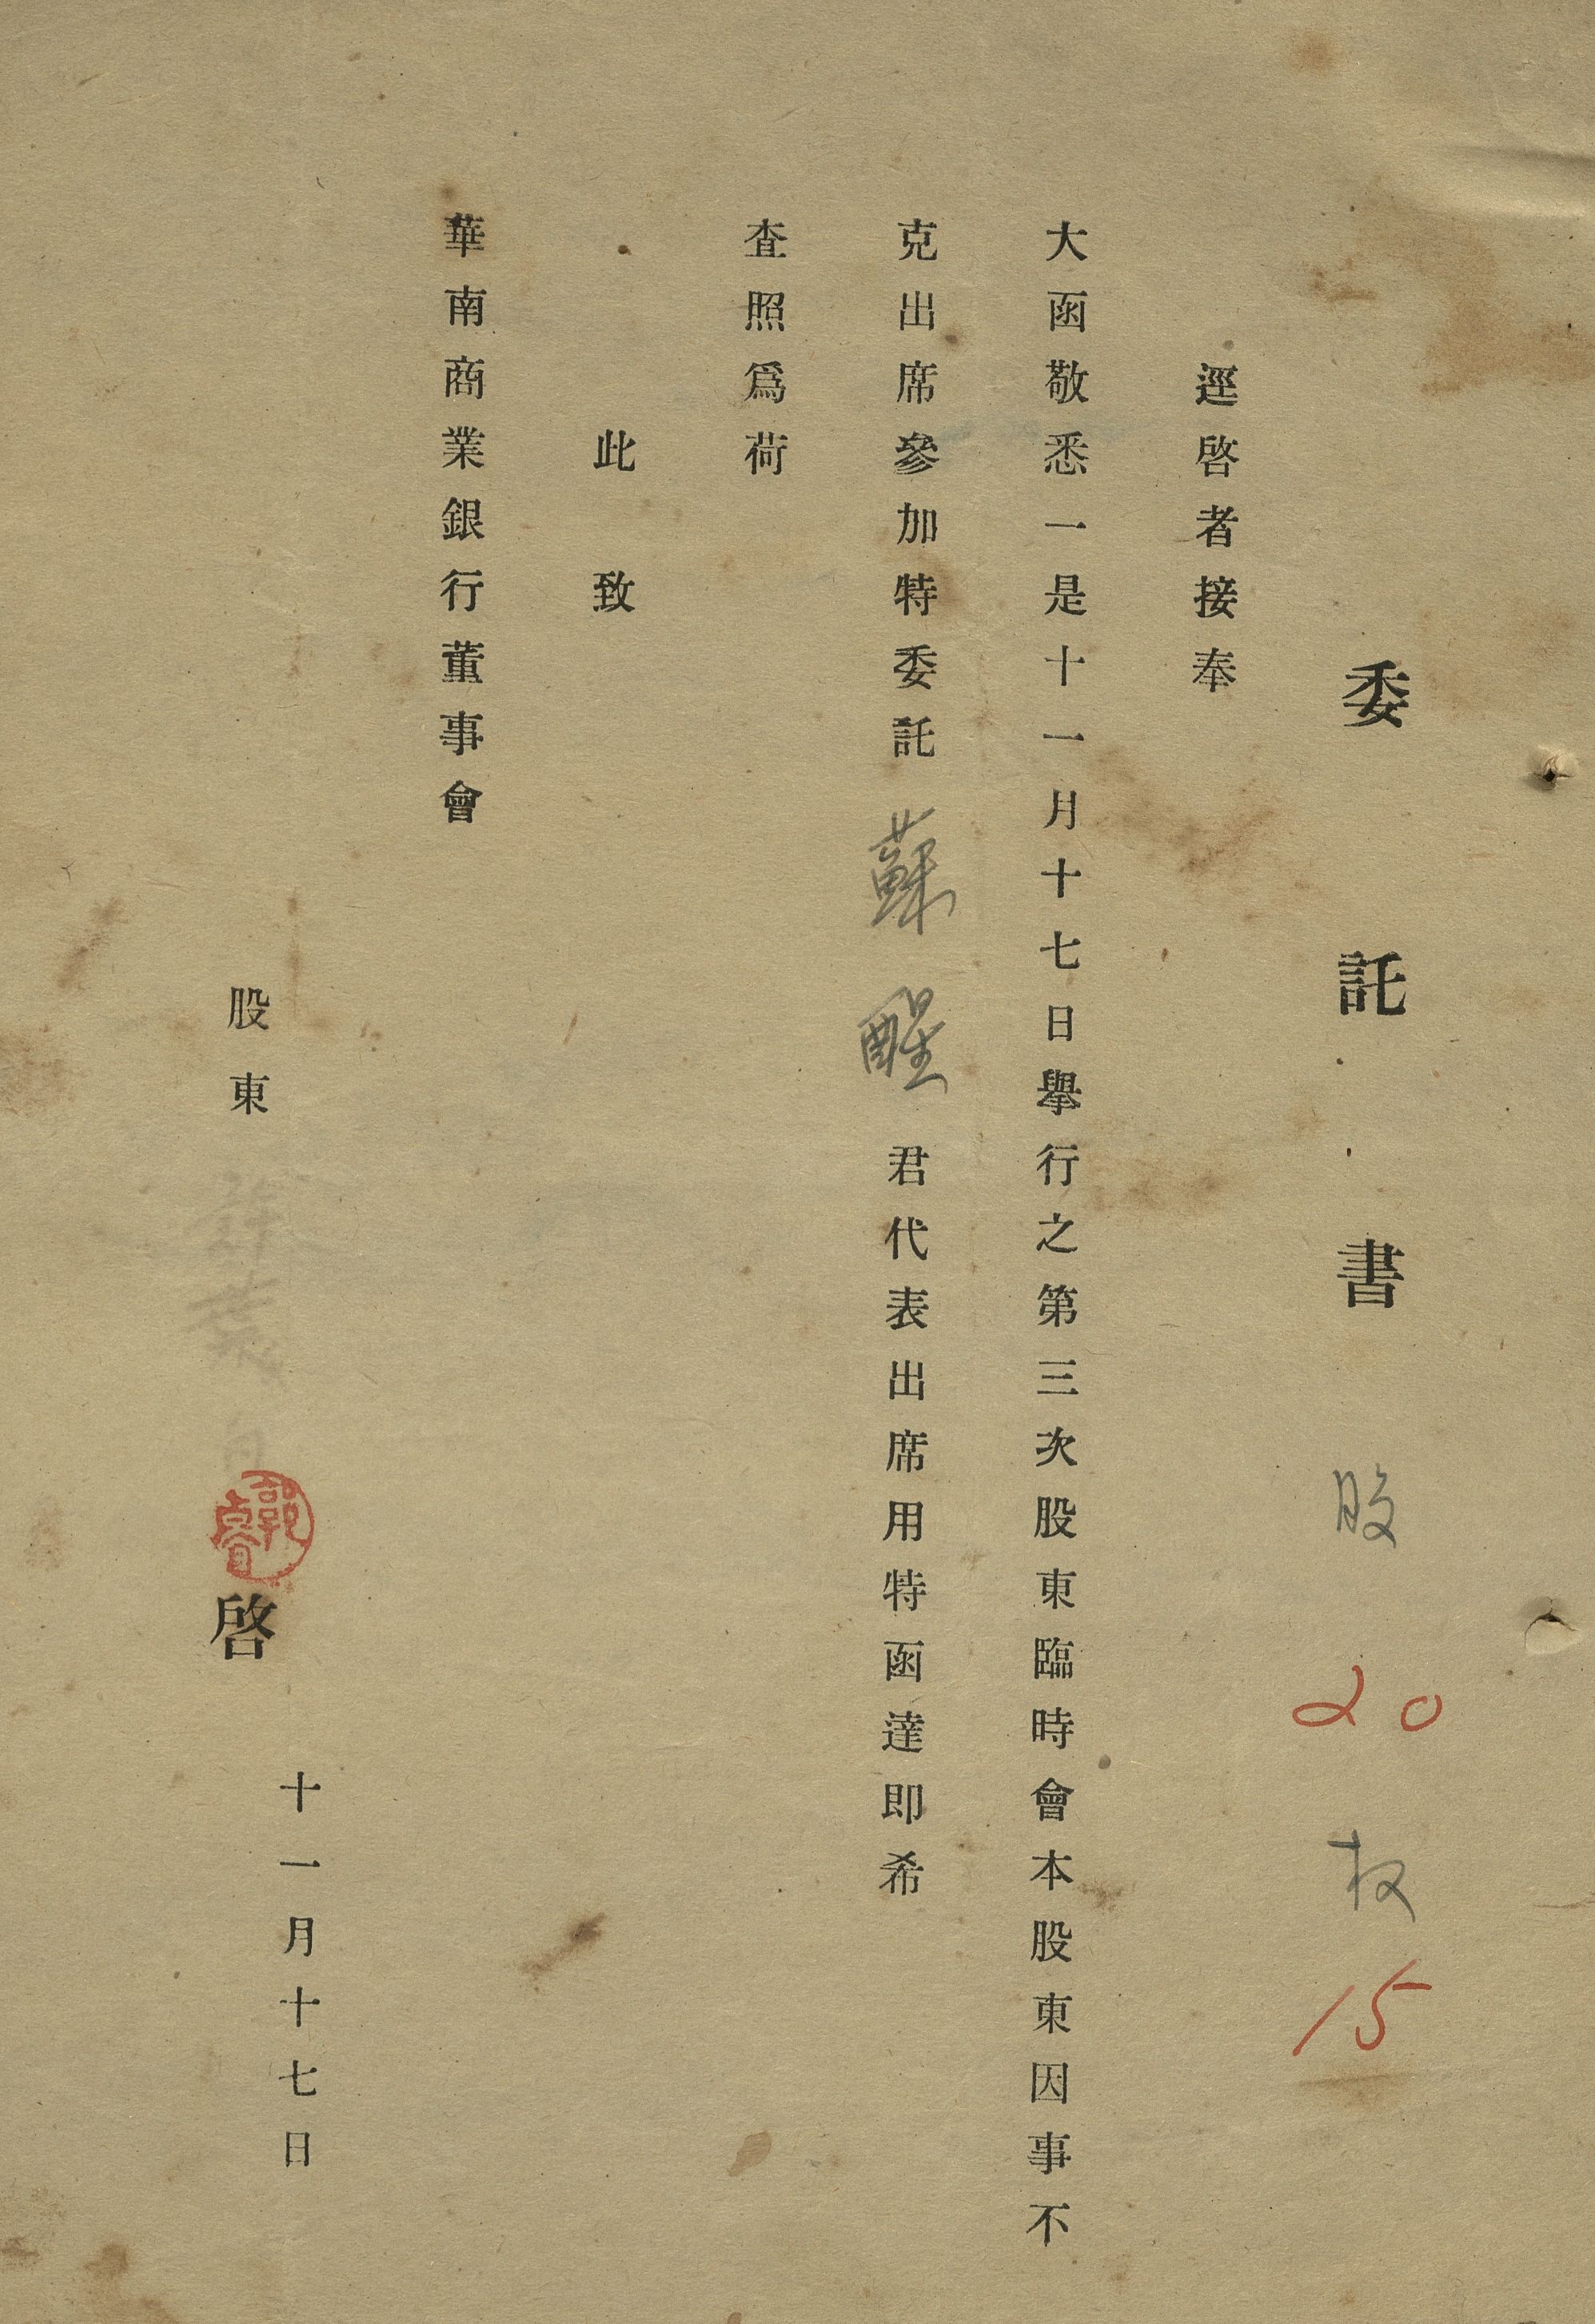 委託書 股 20 权 15
逕啓者接奉
大函敬悉一是十一月十七日擧行之第三次股東臨時會本股東因事不
克出席參加特委託 蘇醒 君代表出席用特函達即希
査照爲荷
此致
華南商業銀行董事會
股東 啓
十一月十七日